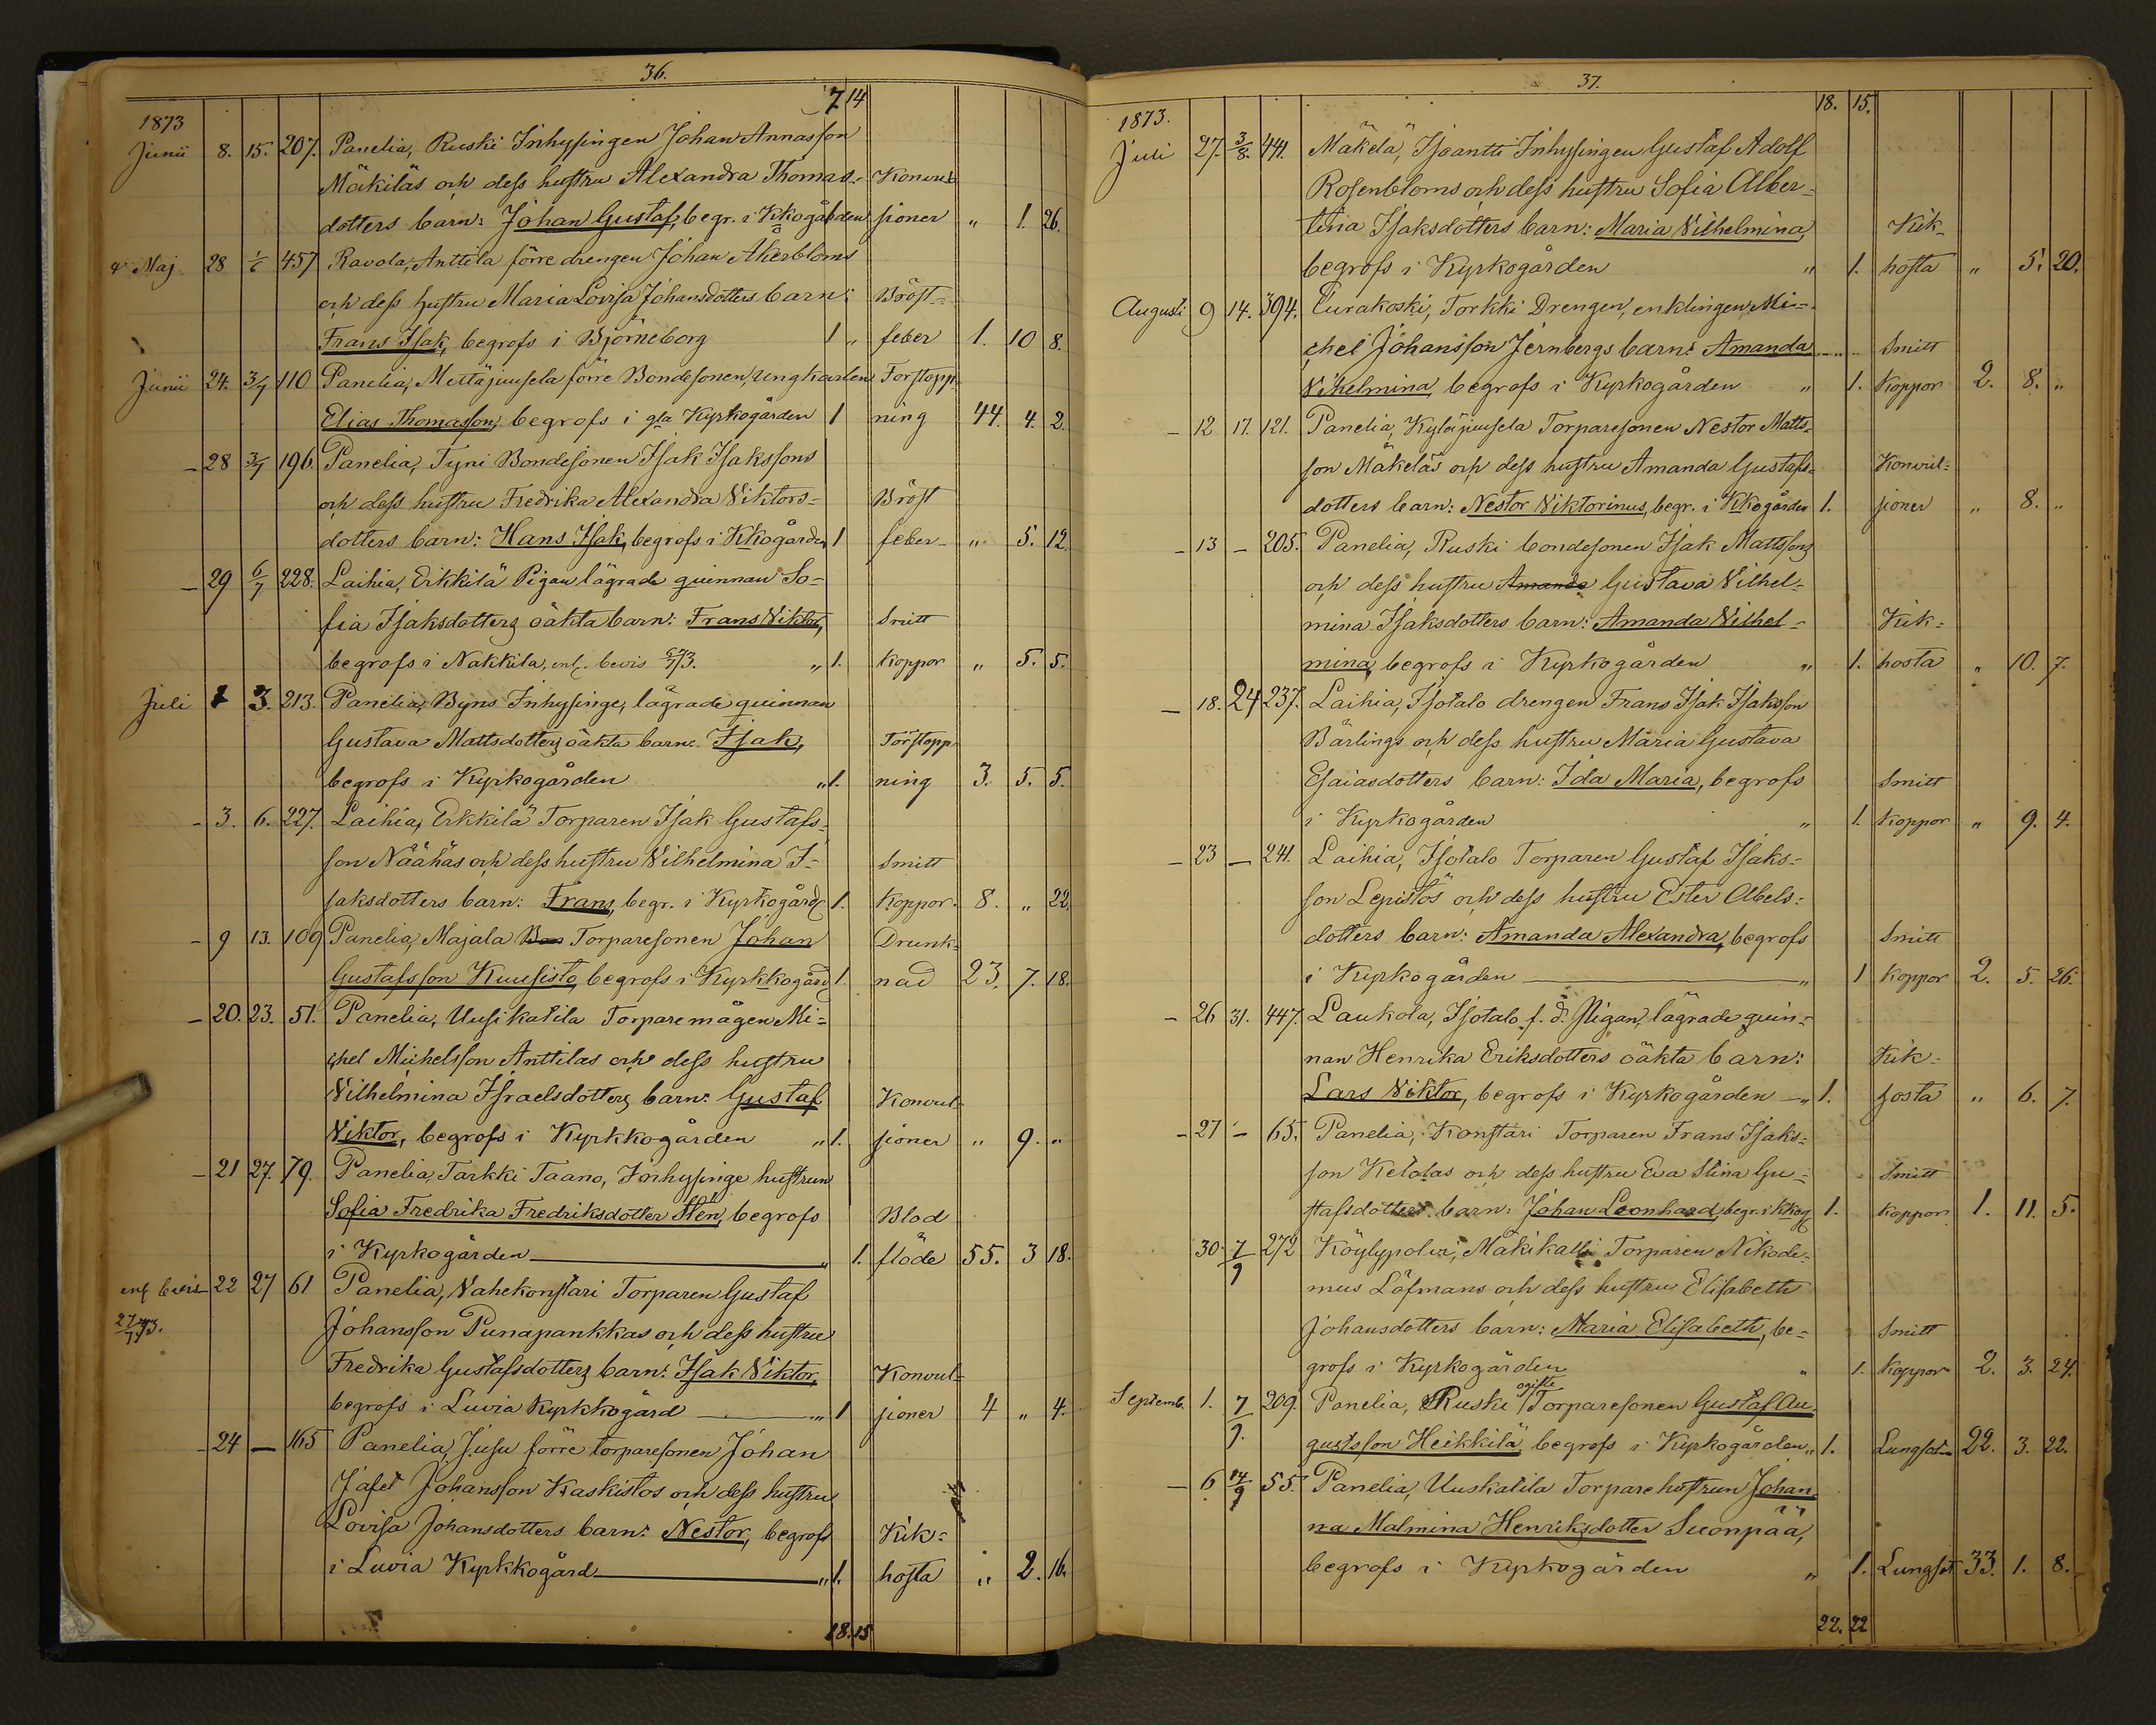 36.
7 14
1873
Junii 8. 15. 207. Panelia, Ruski Inhysingen Johan Annasson
Mäkiläs och dess hustru Alexandra Thomas- Konvul
dotters barn: Johan Gustaf, begr. i Kkogården sioner " 1. 26.
Maj 28 1/6 457 Ravola, Anttila förre drengen Johan Åkerbloms
och dess hustru Maria Lovisa Johansdotters barn: Bröst-
Frans Isak, begrofs i Björneborg 1 " feber 1. 10 8.
Junii 24. 3/7 110 Panelia, Mettäjuusela förre Bondesonen, ungkarlen Förstopp
Elias Thomasson, begrofs i gla Kyrkogården 1 ning 44. 4. 2.
- 28 3/7 196. Panelia, Tyni Bondesonen Isak Isakssons
och dess hustru Fredrika Alexandra Viktors- Bröst
dotters barn: Hans Isak, begrofs i Kkogården 1 feber " 5. 12.
- 29 6/7 228. Laihia, Erkkilä Pigan lägrade quinnan So-
fia Isaksdotters oäkta barn: Frans Viktor, Smitt
begrofs i Nakkila, enl. bevis 6/7 73. " 1. Koppor " 5. 5.
Juli 1 3. 213. Panelia, Byns Inhysinge, lägrade quinnan
Gustava Mattsdotters oäkta barn: Isak, Förstopp
begrofs i Kyrkogården " 1. ning 3. 5. 5.
- 3. 6. 227. Laihia, Erkkilä Torparen Isak Gustafs-
son Näähäs och dess hustru Vilhelmina I- Smitt
saksdotters barn: Frans, begr. i Kyrkogård 1. Koppor. 8. " 22.
- 9 13. 109 Panelia, Majala Bon Torparesonen Johan Drunk-
Gustafsson Kuusisto, begrofs i Kyrkkogård 1. nad 23. 7. 18.
- 20. 23. 51. Panelia, Uusikatila Torparemågen Mi-
chel Michelsson Anttilas och dess hustru
Vilhelmina Israelsdotters barn: Gustaf Konvul-
Viktor, begrofs i Kyrkkogården " 1. sioner " 9. "
- 21 27. 79. Panelia, Tarkki Taano, Inhysinge hustrun
Sofia Fredrika Fredriksdotter Stén, begrofs Blod
i Kyrkogården " 1. flöde 55. 3 18.
enl bevis 22 27 61 Panelia, Vahekonstari Torparen Gustaf
27/7 73. Johansson Punapankkas och dess hustru
Fredrika Gustafsdotters barn: Isak Viktor, Konvul-
begrofs i Luvia Kyrkkogård " 1 sioner 4 " 4.
- 24 — 165 Panelia, Jusu förre torparesonen Johan
Jafet Johansson Kaskistos och dess hustru
Lovisa Johansdotters barn: Nestor, begrofs Kik-
i Luvia Kyrkkogård " 1. hosta " 2. 16.
18. 15
37.
18. 15.
1873.
Juli 27. 3/8. 441. Mäkelä, Isoantti Inhysingen Gustaf Adolf
Rosenbloms och dess hustru Sofia Alber-
tina Isaksdotters barn: Maria Vilhelmina, Kik-
begrofs i Kyrkogården " 1. hosta " 5. 20.
Augusti 9 14. 394. Turakoski, Torkki Drengen, enklingen Mi-
chel Johansson Jernbergs barn: Amanda Smitt
Vilhelmina, begrofs i Kyrkogården " 1. Koppor 2. 8. "
- 12 17. 121. Panelia, Kyläjuusela Torparesonen Nestor Matts-
son Mäkeläs och dess hustru Amanda Gustafs- Konvul-
dotters barn: Nestor Viktorinus, begr. i Kkogården 1. sioner " 8. "
- 13 - 205. Panelia, Ruski bondesonen Isak Mattssons
och dess hustru Amanda Gustava Vilhel-
mina Isaksdotters barn: Amanda Vilhel- Kik-
mina, begrofs i Kyrkogården " 1. hosta " 10. 7.
- 18. 24 237. Laihia, Isotalo drengen Frans Isak Isaksson
Bärlings och dess hustru Maria Gustava
Esaiasdotters barn: Ida Maria, begrofs Smitt
i Kyrkogården " 1. Koppor " 9. 4.
- 23 - 241. Laihia, Isotalo Torparen Gustaf Isaks-
son Lepistös och dess hustru Ester Abels-
dotters barn: Amanda Alexandra, begrofs Smitt
i Kyrkogården " 1 Koppor 2. 5. 26.
- 26 31. 447. Laukola, Isotalo f. d. Pigan, lägrade quin-
nan Henrika Eriksdotters oäkta barn: Kik-
Lars Viktor, begrofs i Kyrkogården " 1. hosta " 6. 7.
- 27 - 65. Panelia, Konstari Torparen Frans Isaks-
son Ketolas och dess hustru Eva Stina Gu- Smitt
stafsdotters barn: Johan Leonhard, begr. i kkog 1. Koppor 1. 11. 5.
30. 7/9 272 Köylypolvi, Mäkikalli Torparen Nikode-
mus Löfmans och dess hustru Elisabeth
Johansdotters barn: Maria Elisabeth, be- Smitt
grofs i Kyrkogården " 1. Koppor 2. 3. 24.
Septemb. 1. 7/9. 209. Panelia, Ruski ogifte Torparesonen Gustaf Au-
gustsson Heikkilä, begrofs i Kyrkogården " 1. Lungsot 22. 3. 22.
- 6 14/9 55. Panelia, Uuskatila Torpare hustrun Johan-
na Malmina Henriksdotter Suonpää,
begrofs i Kyrkogården " 1. Lungsot 33. 1. 8.
22. 22